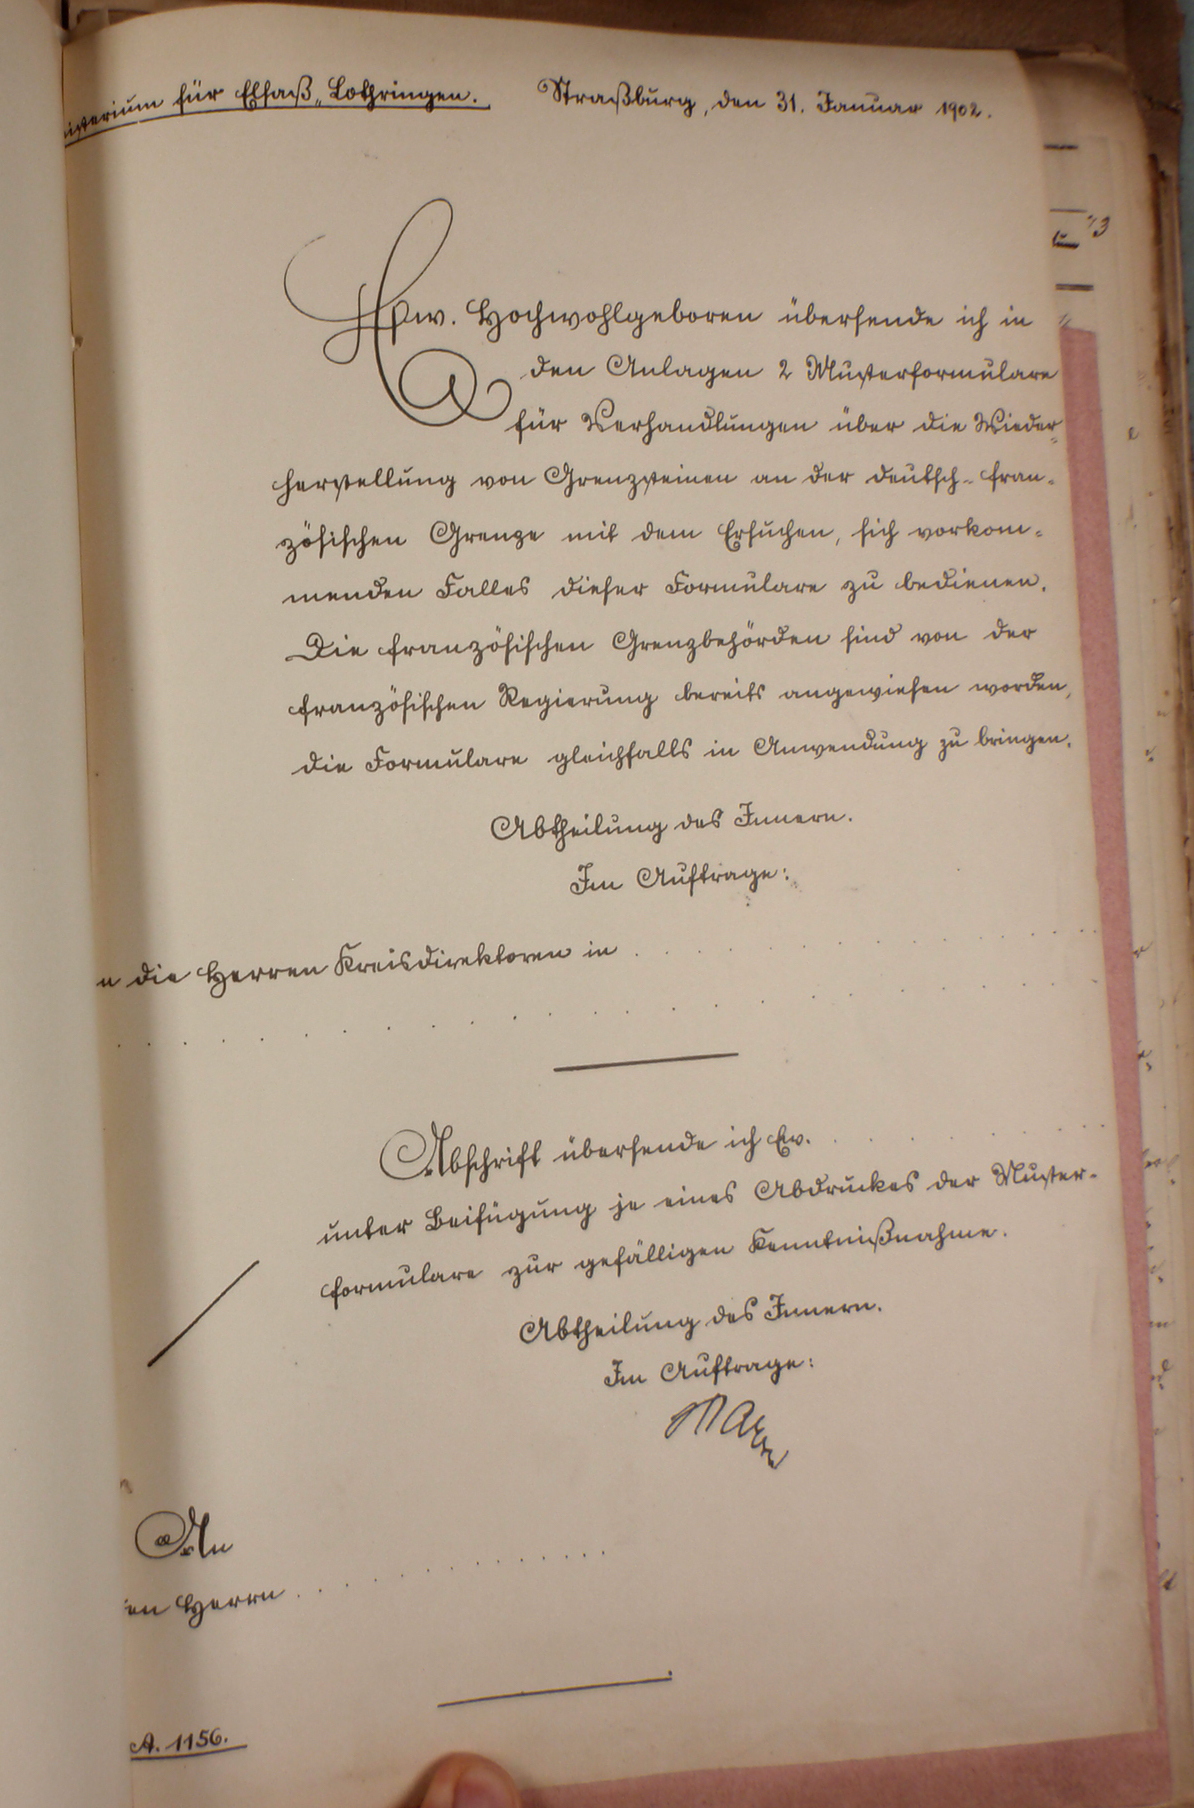 isterium für Elsaß-Lothringen. Straßburg, den 31. Januar 1902.
Ew. Hochwohlgeboren übersende ich in
den Anlagen 2 Musterformulare
für Verhandlungen über die Wieder-
herstellung von Grenzsteinen an der deutsch-fran-
zösischen Grenze mit dem Ersuchen, sich vorkom-
menden Falles dieser Formulare zu bedienen.
Die französischen Grenzbehörden sind von der
französischen Regierung bereits angewiesen worden,
die Formulare gleichfalls in Anwendung zu bringen.
Abtheilung des Innern.
Im Auftrage:
n die Herren Kreisdirektoren in . . . . . . . . .
. . . . . . . . . . . . . .
Abschrift übersende ich Ew. . . . . . . . .
unter Beifügung je eines Abdruckes der Muster-
formulare zur gefälligen Kenntnißnahme.
Abtheilung des Innern.
Im Auftrage:
An
en Herrn . . . . . . . . . . . . .
A. 1156.